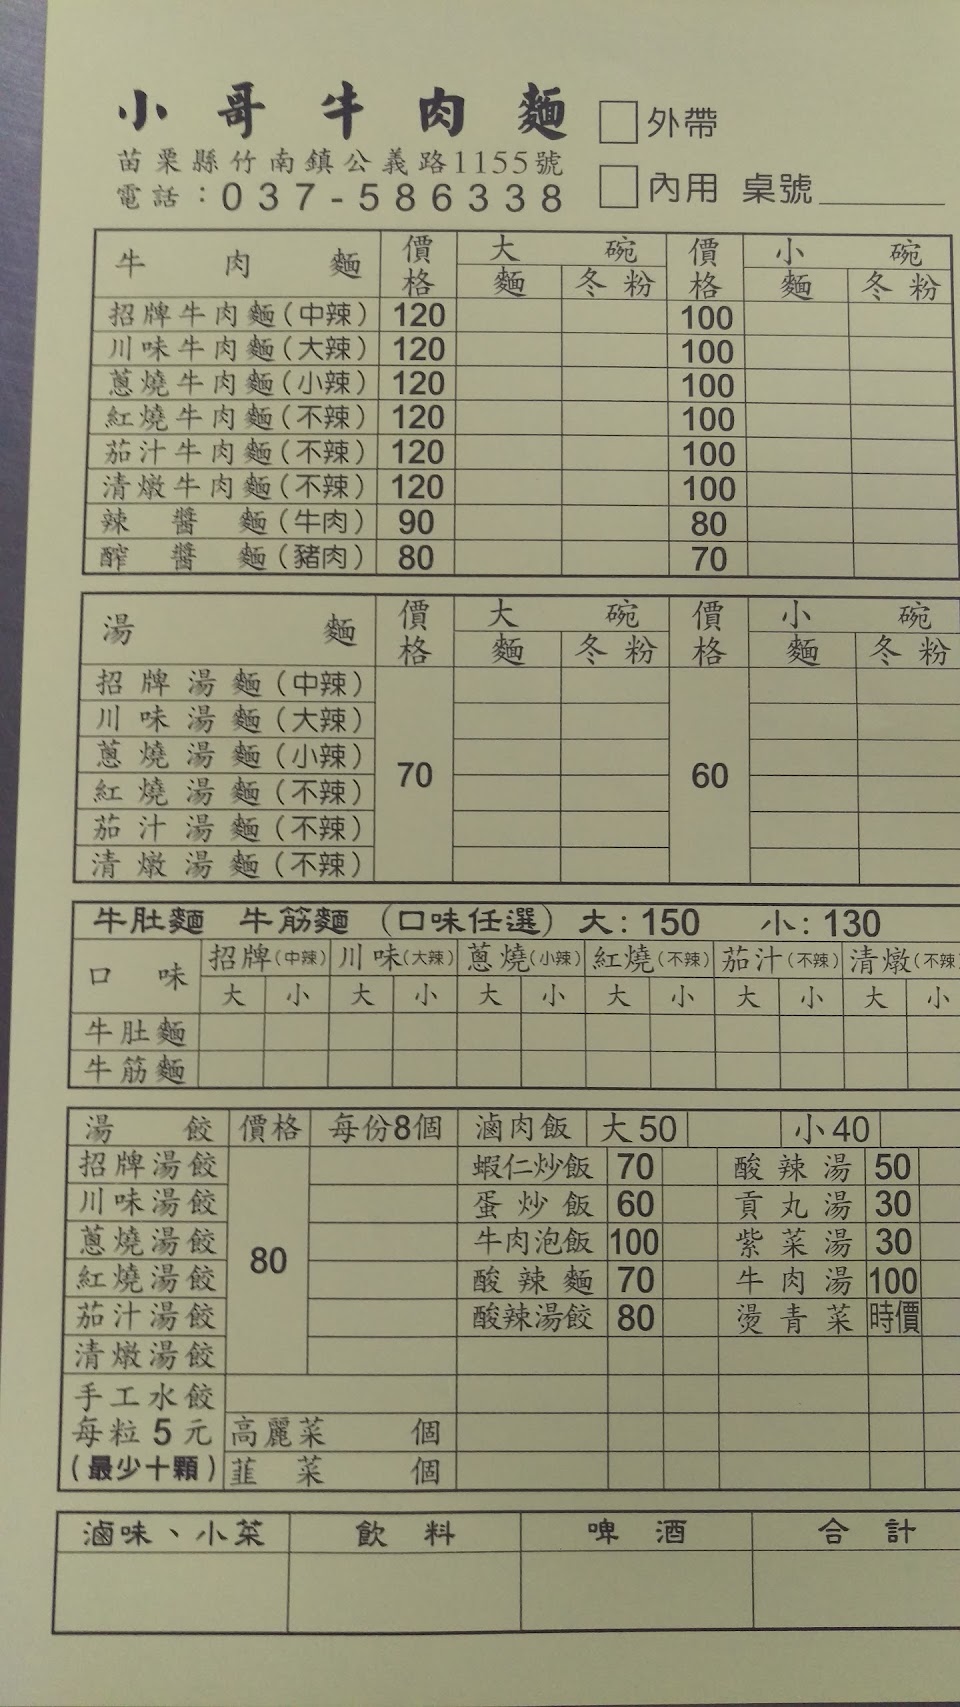 小哥牛肉麵 □外帶
苗栗縣竹南鎮公義路1155號
電話：037-586338 □內用 桌號
牛肉麵 價格 大碗 價格 小碗
麵 冬粉 麵 冬粉
招牌牛肉麵(中辣) 120 100
川味牛肉麵(大辣) 120 100
蔥燒牛肉麵(小辣) 120 100
紅燒牛肉麵(不辣) 120 100
茄汁牛肉麵(不辣) 120 100
清燉牛肉麵(不辣) 120 100
辣醬麵(牛肉) 90 80
醡醬麵(豬肉) 80 70
湯麵 價格 大碗 價格 小碗
麵 冬粉 麵 冬粉
招牌湯麵(中辣)
川味湯麵(大辣)
蔥燒湯麵(小辣) 70 60
紅燒湯麵(不辣)
茄汁湯麵(不辣)
清燉湯麵(不辣)
牛肚麵 牛筋麵 (口味任選) 大:150 小:130
口味 招牌(中辣) 川味(大辣) 蔥燒(小辣) 紅燒(不辣) 茄汁(不辣) 清燉(不辣)
大 小 大 小 大 小 大 小 大 小 大 小
牛肚麵
牛筋麵
湯餃 價格 每份8個 滷肉飯 大50 小40
招牌湯餃 蝦仁炒飯 70 酸辣湯 50
川味湯餃 蛋炒飯 60 貢丸湯 30
蔥燒湯餃 80 牛肉泡飯 100 紫菜湯 30
紅燒湯餃 酸辣麵 70 牛肉湯 100
茄汁湯餃 酸辣湯餃 80 燙青菜 時價
清燉湯餃
手工水餃
每粒5元 高麗菜 個
(最少十顆) 韮菜 個
滷味、小菜 飲料 啤酒 合計